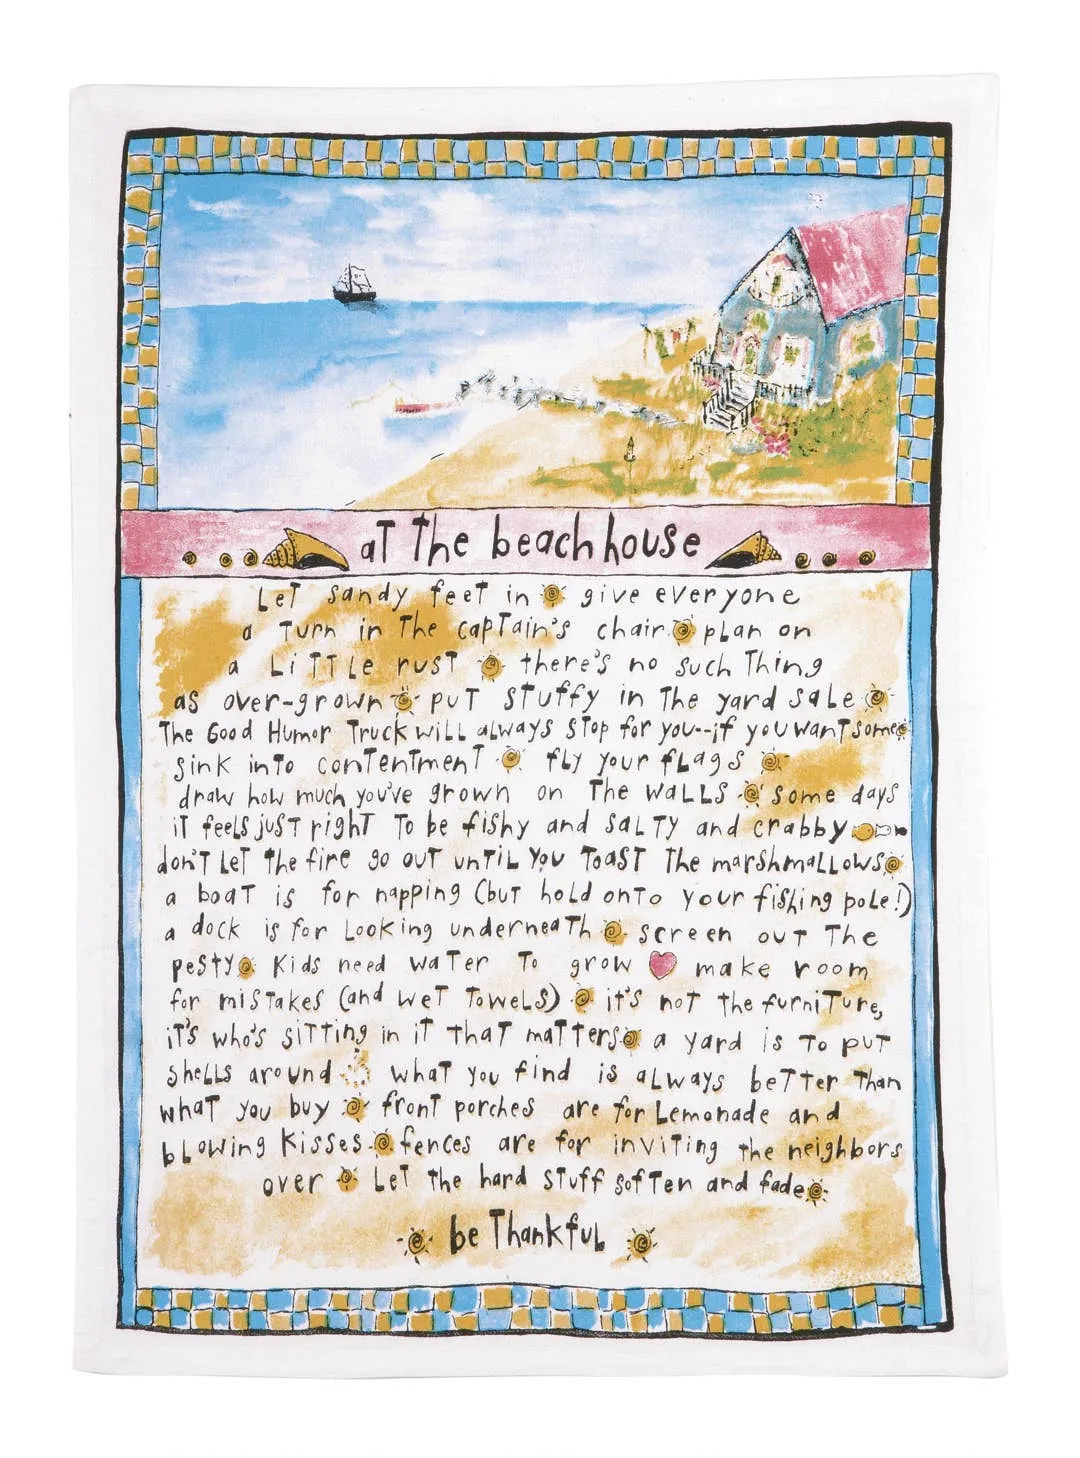 at the beach house
Let sandy feet in give everyone
a turn in the captain's chair plan on
a little rust there's no such thing
as over-grown put stuffy in the yard sale
The Good Humor Truck will always stop for you--if you want some
sink into contentment fly your flags
draw how much you've grown on the walls some days
it feels just right to be fishy and salty and crabby
don't let the fire go out until you toast the marshmallows
a boat is for napping (but hold onto your fishing pole!)
a dock is for looking underneath screen out the
pesty kids need water to grow make room
for mistakes (and wet towels) it's not the furniture,
it's who's sitting in it that matters a yard is to put
shells around what you find is always better than
what you buy front porches are for lemonade and
blowing kisses fences are for inviting the neighbors
over Let the hard stuff soften and fade
be Thankful